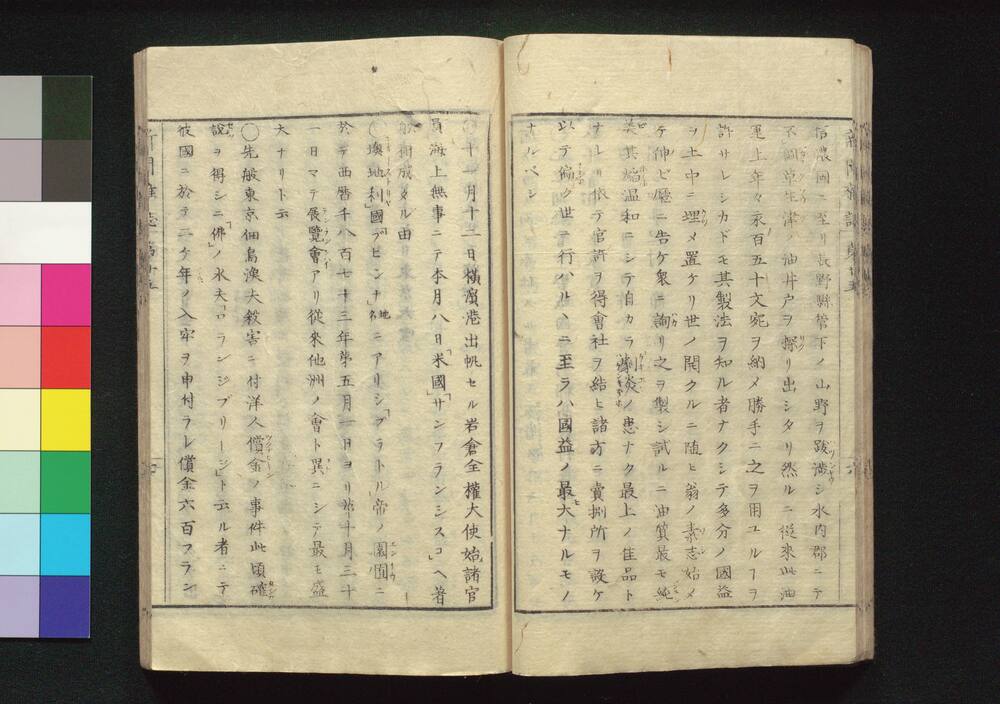 信濃國ニ至リ長野縣管下ノ山野ヲ跋渉シ水内郡ニテ
不圖草生津ノ油井戸ヲ探リ出シタリ然ルニ從來此油
運上年々永百五十文宛ヲ納メ勝手ニ之ヲ用ユルヿヲ
許サレシカドモ其製法ヲ知ル者ナクシテ多分ノ國益
ヲ土中ニ埋メ置ケリ世ノ開クルニ隨ヒ翁ノ素志始メ
テ伸ビ廳ニ告ケ衆ニ詢リ之ヲ製シ試ルニ油質最モ純
美其焰温和ニシテ自カラ劇炎ノ患ナク最上ノ佳品ト
ナレリ依テ官許ヲ得會社ヲ結ヒ諸方ニ賣捌所ヲ設ケ
以テ偏ク世ニ行ハルヽニ至ラハ國益ノ最大ナルモノ
ナルベシ
十一月十二日横濱港出帆セル岩倉全權大使始諸官
員海上無事ニテ本月八日米國「サンフランシスコ」ヘ著
船相成タル由
〇墺地利國「ビンナ」地名ニアリシ「プラトル」帝ノ園囿ニ
於テ西暦千八百七十三年第五月一日ヨリ始十月三十
一日マテ展覽會アリ從來他洲ノ會ト異ニシテ最モ盛
大ナリト云
〇先般東京佃島漁夫殺害ニ付洋人償金ノ事件此頃確
説ヲ得シニ「佛」ノ水夫「ロランジブリージ」ト云ル者ニテ
彼國ニ於テ二ケ年ノ入牢ヲ申付ラレ償金六百フラン